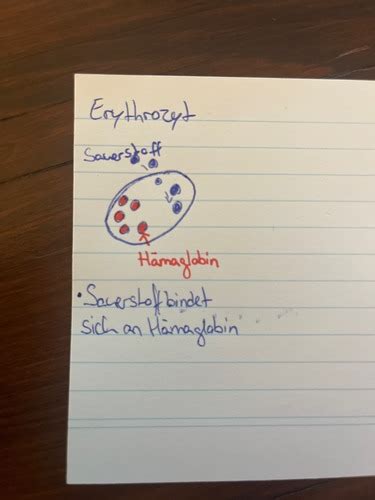 Erythrozyt
Sauerstoff
Hämaglobin
• Sauerstoff bindet
sich an Hämaglobin